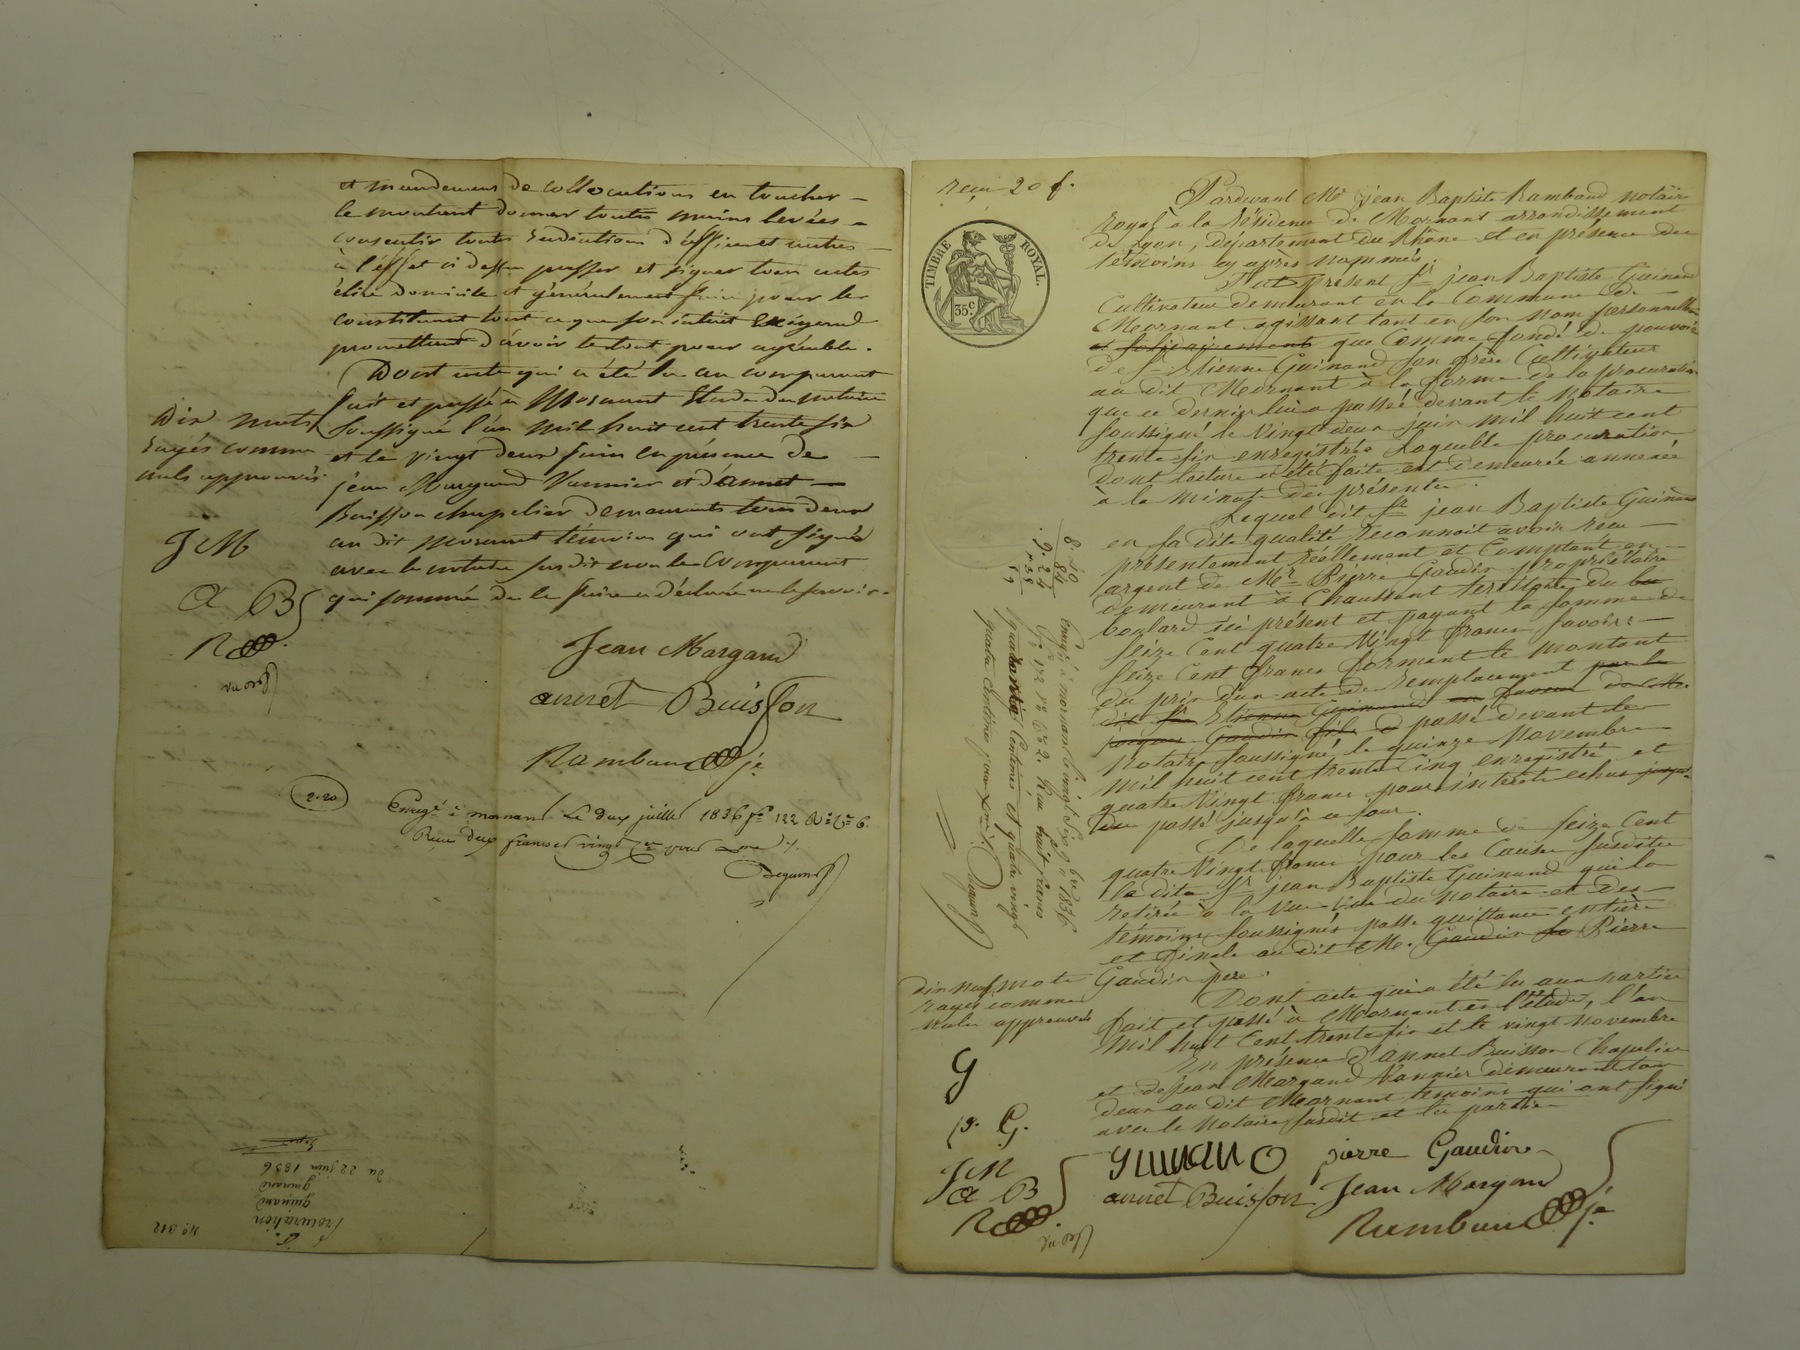 et mandemens de collocutions en toucher
le montant donner toutes mains levées
consentir toutes radiations d'office et autres
à l'effet ci dessu passer et signer tous actes
élire domicile et généralement faire pour le
constituant tout ce que son intérêt Exigerad
promettant d'avoir le tout pour agréable.
Dont acte qui a été lu au comparant
fait et passé à Mornant Etude du notaire
soussigné l'an mil huit cent trente six
et le vingt deux juin en présence de
jean Margand Vannier et d'annet
Buisson chapelier demeurants tous deux
au dit mornant témoins qui ont signé
avec le notaire susdit non le Comparant
qui sommé de le faire a déclaré ne le savoir.
Dix mots
rayés comme
nuls approuvés
J M
a B
R
Jean Margand
annet Buisson
Rambaud je
2.20
Enregé à mornant le deux juillet 1836 fo 122 Ro Ce 6.
Reçu deux francs et vingt
No 312
Procuration
guinand
guinand
du 22 juin 1836
reçu 20 f.
TIMBRE ROYAL.
35c
Pardevant Me jean Baptiste Rambaud notaire
Royal à la Résidence de Mornant arrondissement
de Lyon, département du Rhône et en présence des
témoins cy après nommés.
Fut présent Sr jean Baptiste Guinand
Cultivateur demeurant en la Commune de
Mornant agissant tant en son nom personnelle
et solidairement que Comme fondé de pouvoir
de Sr Etienne Guinand son frère Cultivateur
au dit Mornant à la forme de la procuration
que ce dernier lui a passée devant le Notaire
soussigné le Vingt deux juin mil huit cent
trente six enregistrée laquelle procuration
dont lecture a été faite est demeurée annexée
à la minute des présentes.
Lequel dit Sr jean Baptiste Guinand
en sa dite qualité reconnoit avoir reçu
présentement réellement et Comptant en
argent de Mr Pierre Gaudin propriétaire
demeurant à Chaussant territoire du
boulard ici présent et payant la somme de
Seize Cent quatre Vingt francs Savoir:
Seize Cent francs formant le montant
du prix d'un acte de remplacement par le
dit Sr Etienne Guinand en faveur de M.
Gaudin fils passé devant le
Notaire soussigné le quinze Novembre
mil huit cent trente Cinq enregistré et
quatre Vingt francs pour interets echus
passé jusqu'à ce jour.
De laquelle somme de Seize Cent
quatre Vingt francs pour les Causes susdites
le dit Sr jean Baptiste Guinand qui la
retirée à la vue du notaire et des
témoins soussignés passe quittance entière
et finale au dit M. Gaudin Pierre
Gaudin père.
Dont acte qui a été lu aux parties
fait et passé à Mornant en l'étude, l'an
mil huit Cent trente six et le vingt Novembre
En présence d'annet Buisson Chapelier
et de Jean Margand Vannier demeurant tous
deux au dit Mornant témoins qui ont signé
avec le Notaire susdit et les parties
8.40
84
9.24
Enregé à mornant le vingt six 9bre 1836
quarante Centimes et quatre vingt
quatre Centimes
dix neuf mots
rayés comme
nuls approuvés
G
p. G.
J M
a B
R
guinand
pierre Gaudin
annet Buisson
Jean Margand
Rambaud je